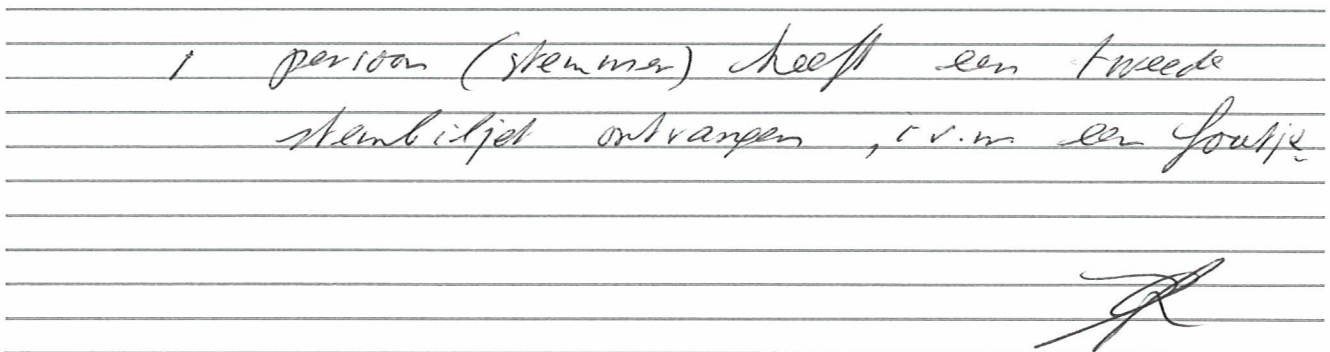 1 persoon (stemmer) heeft een tweede
stembiljet ontvangen, i.v.m een foutje.